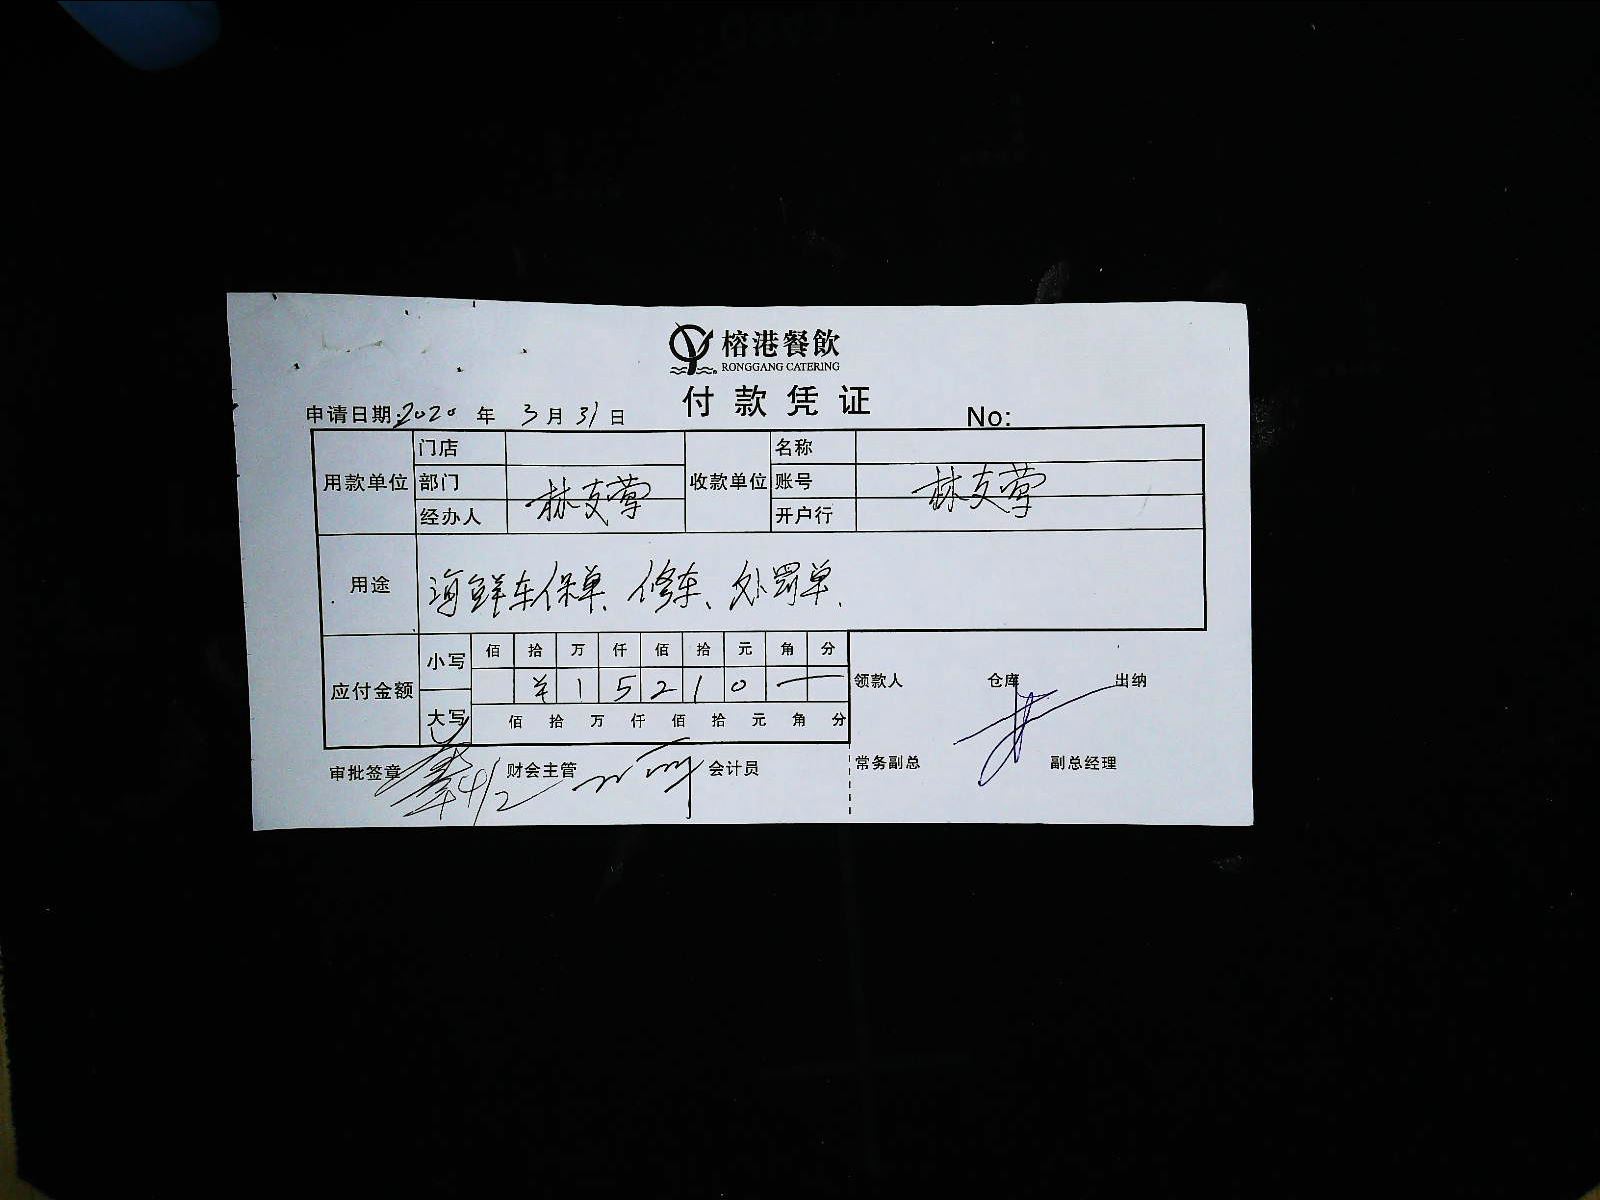 榕港餐飲
RONGGANG CATERING
付款凭证
申请日期:2020年3月31日 No:
用款单位 门店 收款单位 名称
部门 账号
经办人 林支莺 开户行 林支莺
用途 海鲜车保单、修车、处罚单、
应付金额 小写 佰 拾 万 仟 佰 拾 元 角 分
¥ 1 5 2 1 0 —
大写 佰 拾 万 仟 佰 拾 元 角 分
领款人 仓库 出纳
审批签章 财会主管 会计员 常务副总 副总经理